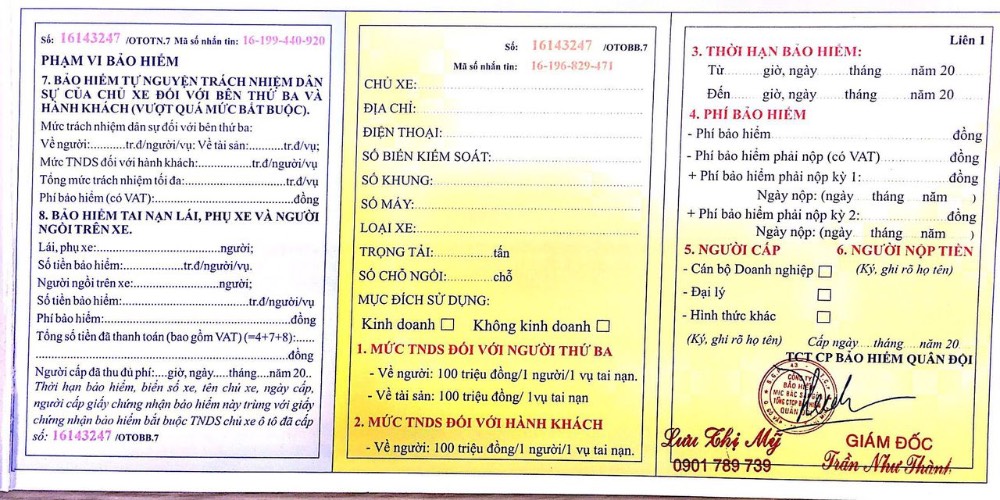 Số: 16143247 /OTOTN.7 Mã số nhắn tin: 16-199-440-920
PHẠM VI BẢO HIỂM
7. BẢO HIỂM TỰ NGUYỆN TRÁCH NHIỆM DÂN
SỰ CỦA CHỦ XE ĐỐI VỚI BÊN THỨ BA VÀ
HÀNH KHÁCH (VƯỢT QUÁ MỨC BẮT BUỘC).
Mức trách nhiệm dân sự đối với bên thứ ba:
Về người:..........tr.đ/người/vụ: Về tài sản:..........tr.đ/vụ;
Mức TNDS đối với hành khách:..............tr.đ/người/vụ
Tổng mức trách nhiệm tối đa:..........................tr.đ/vụ
Phí bảo hiểm (có VAT):...................................đồng
8. BẢO HIỂM TAI NẠN LÁI, PHỤ XE VÀ NGƯỜI
NGỒI TRÊN XE.
Lái, phụ xe:.........................người;
Số tiền bảo hiểm:...............tr.đ/người/vụ.
Người ngồi trên xe:.................người;
Số tiền bảo hiểm:................................tr.đ/người/vụ
Phí bảo hiểm:...............................................đồng
Tổng số tiền đã thanh toán (bao gồm VAT) (=4+7+8):......
................................................................đồng
Người cấp đã thu đủ phí:....giờ, ngày.....tháng....năm 20..
Thời hạn bảo hiểm, biển số xe, tên chủ xe, ngày cấp,
người cấp giấy chứng nhận bảo hiểm này trùng với giấy
chứng nhận bảo hiểm bắt buộc TNDS chủ xe ô tô đã cấp
số: 16143247 /OTOBB.7
Số: 16143247 /OTOBB.7
Mã số nhắn tin: 16-196-829-471
CHỦ XE:
ĐỊA CHỈ:
ĐIỆN THOẠI:
SỐ BIỂN KIỂM SOÁT:
SỐ KHUNG:
SỐ MÁY:
LOẠI XE:
TRỌNG TẢI:..................tấn
SỐ CHỖ NGỒI:..............chỗ
MỤC ĐÍCH SỬ DỤNG:
Kinh doanh ☐ Không kinh doanh ☐
1. MỨC TNDS ĐỐI VỚI NGƯỜI THỨ BA
- Về người: 100 triệu đồng/1 người/1 vụ tai nạn.
- Về tài sản: 100 triệu đồng/ 1vụ tai nạn
2. MỨC TNDS ĐỐI VỚI HÀNH KHÁCH
- Về người: 100 triệu đồng/1 người/1 vụ tai nạn.
Liên 1
3. THỜI HẠN BẢO HIỂM:
Từ......giờ, ngày.......tháng.......năm 20
Đến......giờ, ngày.......tháng.......năm 20
4. PHÍ BẢO HIỂM
- Phí bảo hiểm..............................đồng
- Phí bảo hiểm phải nộp (có VAT)..............đồng
+ Phí bảo hiểm phải nộp kỳ 1:................đồng
Ngày nộp: (ngày tháng năm )
+ Phí bảo hiểm phải nộp kỳ 2:................đồng
Ngày nộp: (ngày tháng năm )
5. NGƯỜI CẤP 6. NGƯỜI NỘP TIỀN
- Cán bộ Doanh nghiệp ☐ (Ký, ghi rõ họ tên)
- Đại lý ☐
- Hình thức khác ☐
(Ký, ghi rõ họ tên) Cấp ngày....tháng....năm 20
TCT CP BẢO HIỂM QUÂN ĐỘI
CÔNG TY
BẢO HIỂM
Lưu Thị Mỹ
0901 789 739
GIÁM ĐỐC
Trần Như Thành